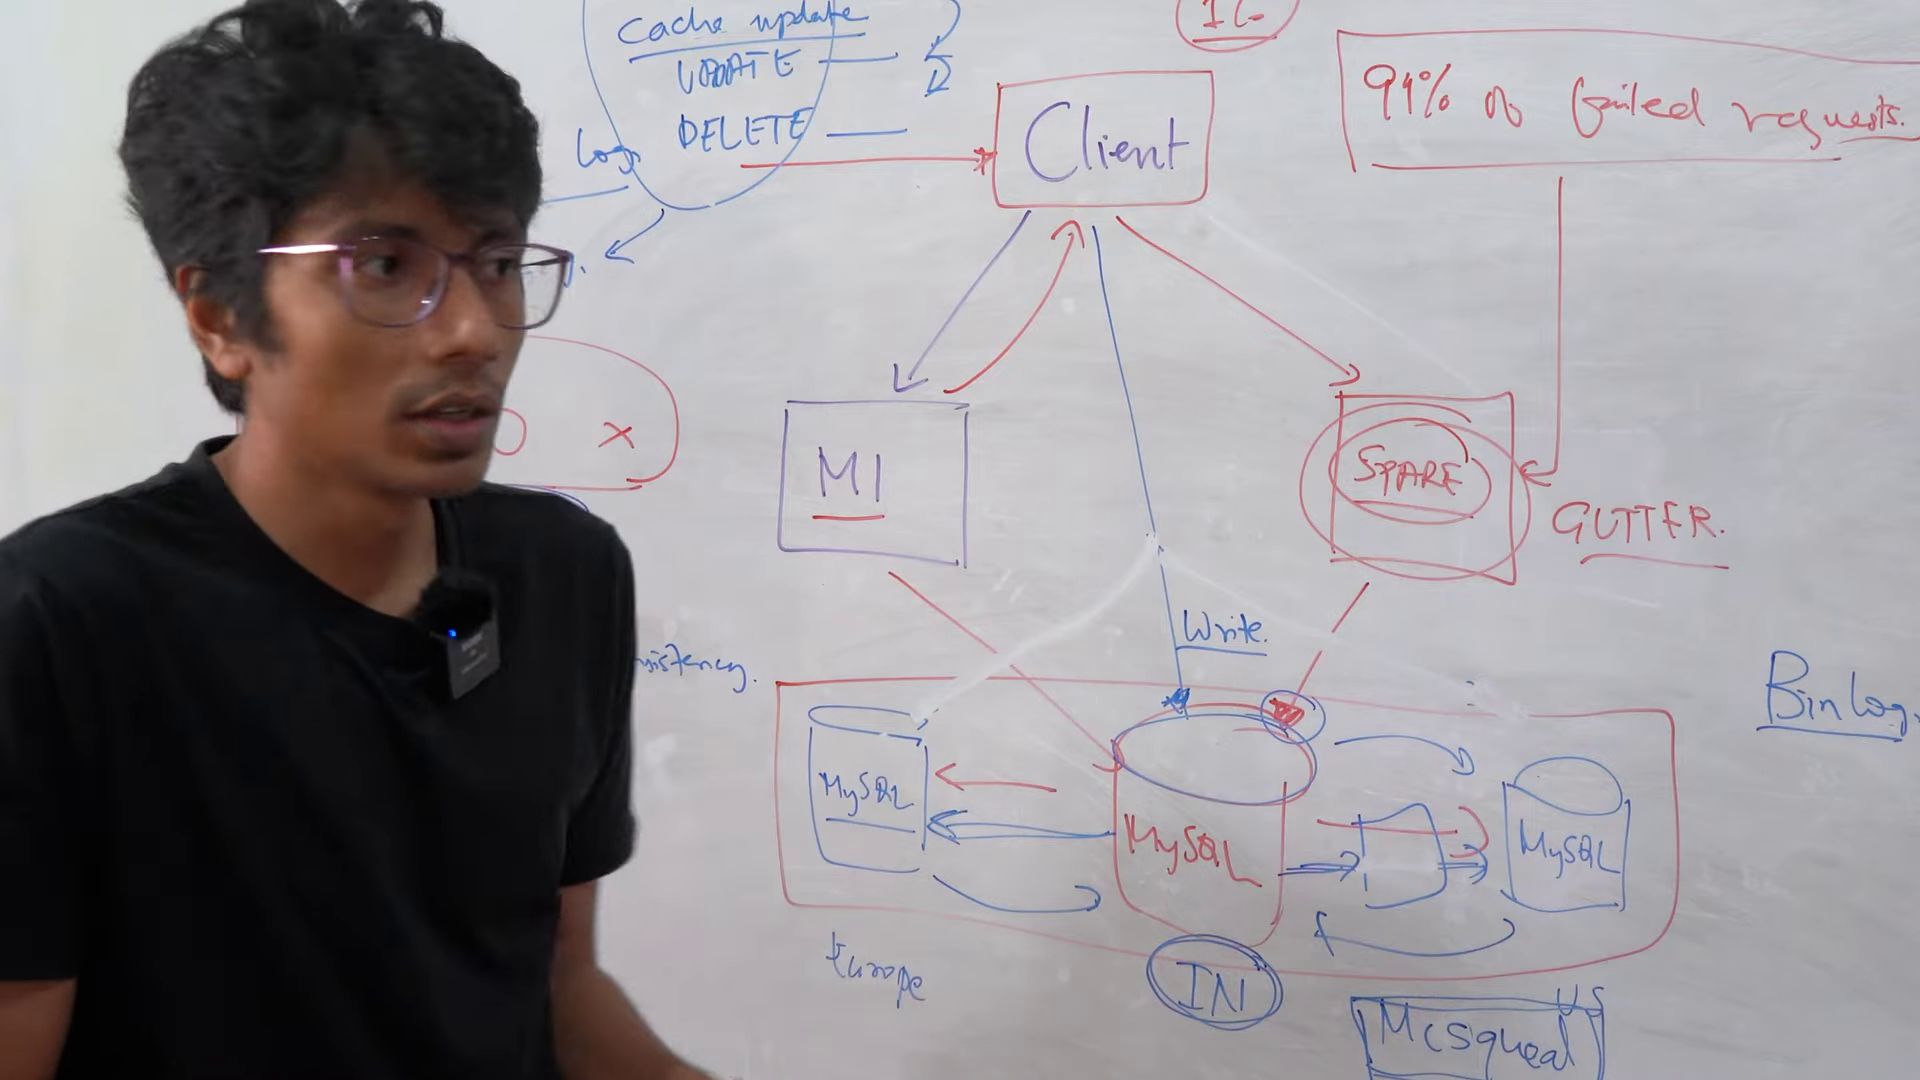 Cache update
UPDATE
DELETE
Log
Client
99% of failed requests.
M1
SPARE
GUTTER.
Write.
sistency.
Binlog
MySQL
MySQL
MySQL
Europe
IN
US
McSqueal